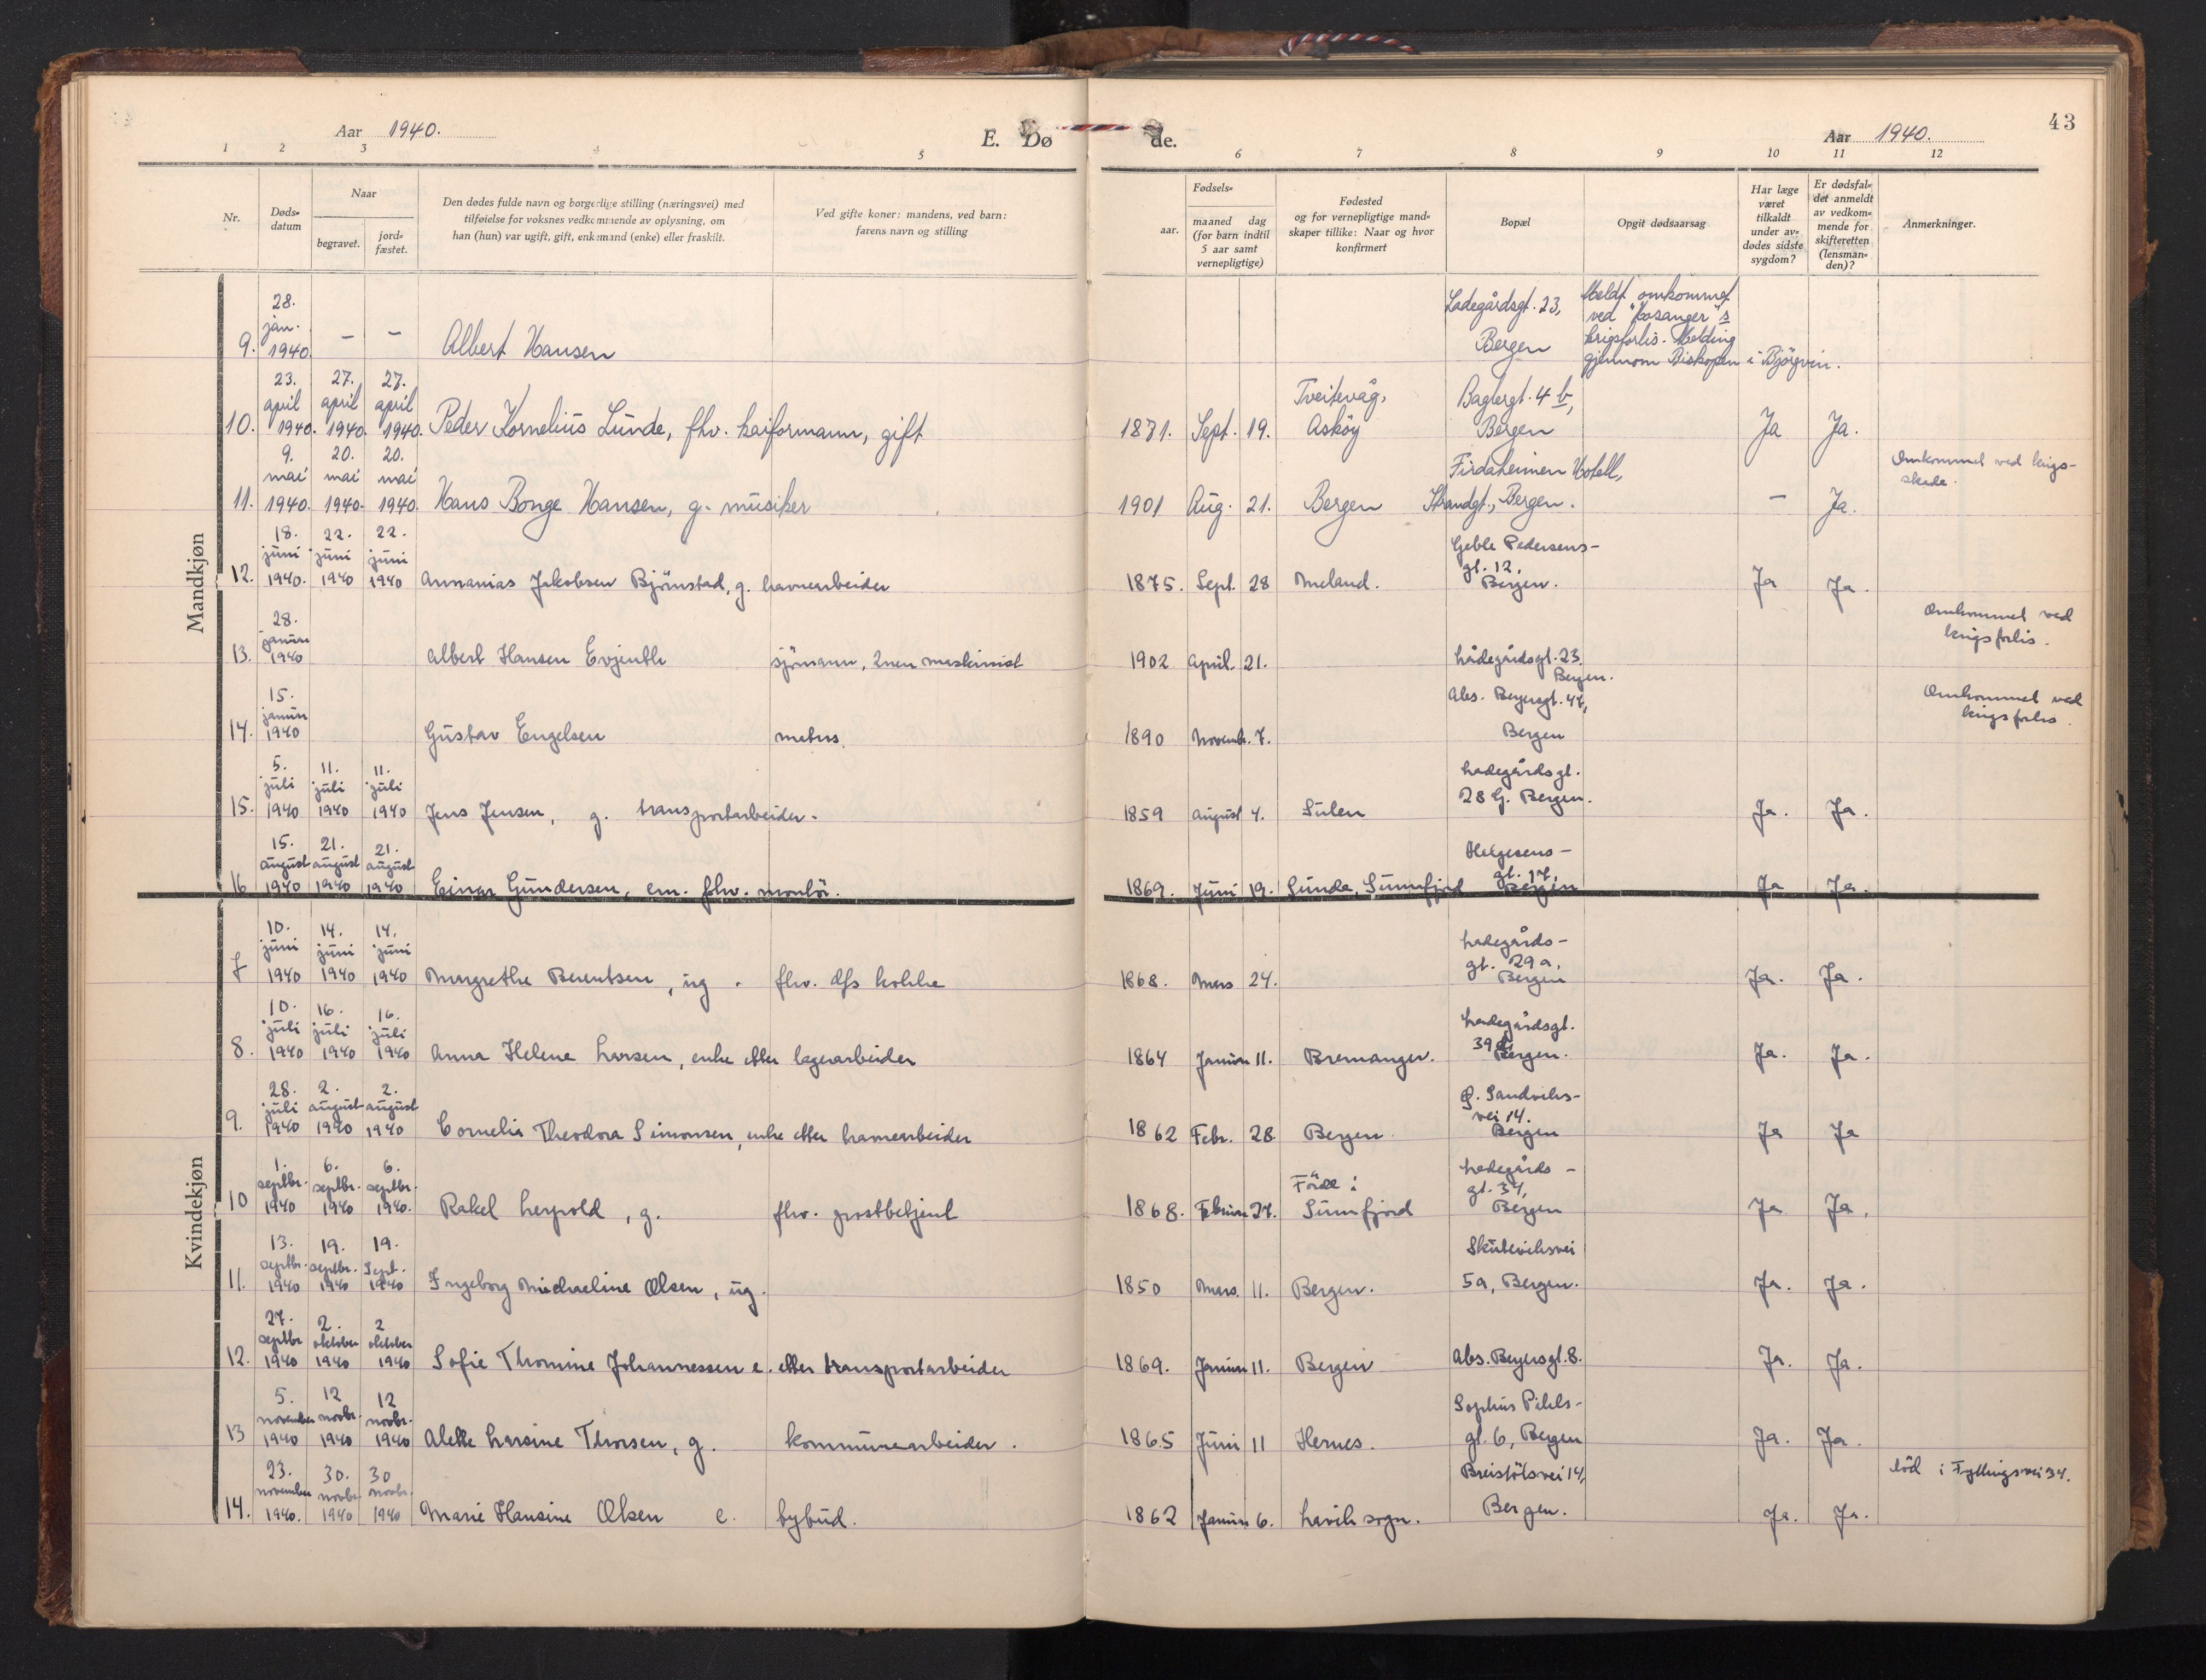 43
Aar 1940. E. Dø de. Aar 1940.
1 2 3 4 5 6 7 8 9 10 11 12
Nr.
Døds-
datum
Naar
begravet.
jord-
fæstet.
Den dødes fulde navn og borgerlige stilling (næringsvei) med
tilføielse for voksnes vedkommende av oplysning, om
han (hun) var ugift, gift, enkemand (enke) eller fraskilt.
Ved gifte koner: mandens, ved barn:
farens navn og stilling
Fødsels-
aar.
maaned dag
(for barn indtil
5 aar samt
vernepligtige)
Fødested
og for vernepligtige mand-
skaper tillike: Naar og hvor
konfirmert
Bopæl
Opgit dødsaarsag
Har læge
været
tilkaldt
under av-
dødes sidste
sygdom?
Er dødsfal-
det anmeldt
av vedkom-
mende for
skifteretten
(lensman-
den)?
Anmerkninger.
Mandkjøn
9. 28. jan. 1940. — — Albert Hansen Ladegårdsgt. 23, Bergen
Meldt omkommet
ved "Hosanger"s
krigsforlis. Melding
gjennom Biskopen i Bjørgvin.
10. 23. april 1940. 27. april 1940. 27. april 1940. Peder Kornelius Lunde, fhv. kaiformann, gift 1871. Sept. 19. Tveitevåg, Askøy Baglergt. 4 b, Bergen Ja Ja.
11. 9. mai 1940. 20. mai 1940. 20. mai 1940. Hans Bonge Hansen, g. musiker 1901 Aug. 21. Bergen Firdaheimen Hotell, Strandgt., Bergen. — Ja. Omkommet ved krigs-
skade.
12. 18. juni 1940. 22. juni 1940 22. juni 1940 Annanias Jakobsen Bjørnstad, g. havnearbeider 1875. Sept. 28 Meland. Geble Pedersens-
gt. 12, Bergen. Ja Ja.
13. 28. januar 1940 Albert Hansen Evjenth sjømann, 2nen maskinist 1902 April. 21. Ladegårdsgt. 23. Bergen. Omkommet ved
krigsforlis.
14. 15. januar 1940 Gustav Engelsen 1890 Novemb. 7. Abs. Beyersgt. 47, Bergen Omkommet ved
krigsforlis.
15. 5. juli 1940 11. juli 1940 11. juli 1940 Jens Jensen, g. transportarbeider. 1859 August 4. Sulen Ladegårdsgt.
28 G. Bergen. Ja. Ja.
16 15. august 1940 21. august 1940 21. august 1940 Einar Gundersen, em. fhv. montør. 1869. Juni 19. Sunde, Sunnfjord Helgesens-
gt. 17, Bergen Ja Ja.
Kvindekjøn
7 10. juni 1940 14. juni 1940 14. juni 1940 Margrethe Berentsen, ug. fhv. dfs kokke 1868. Mars 24. Ladegårds-
gt. 29a, Bergen Ja. Ja.
8. 10. juli 1940 16. juli 1940 16. juli 1940 Anna Helene Larsen, enke etter lagerarbeider 1864 Januar 11. Bremanger. Ladegårdsgt.
39 Bergen. Ja. Ja.
9. 28. juli 1940 2. august 1940 2. august 1940 Cornelia Theodora Simonsen, enke etter havnearbeider 1862 Febr. 28. Bergen Ø. Sandviks-
vei 14. Bergen Ja Ja
10 1. septbr. 1940 6. septbr. 1940 6. septbr. 1940. Rakel Leypold, g. fhv. postbetjent 1868. Februar 27. Førde i Sunnfjord Ladegårds-
gt. 34, Bergen Ja Ja.
11. 13. septbr. 1940 19. septbr. 1940 19. Sept. 1940 Ingeborg Michaeline Olsen, ug. 1850 Mars. 11. Bergen. Skuteviksvei
5a, Bergen. Ja. Ja.
12. 27. septbr 1940 2. oktober 1940 2 oktober 1940 Sofie Thomine Johannessen e. etter transportarbeider 1869. Januar 11. Bergen Abs. Beyersgt. 8. Ja. Ja.
13 5. november 1940 12 novbr. 1940 12 novbr. 1940 Alette Larsine Thorsen, g. kommunearbeider. 1865 Juni 11 Hernes. Sophus Pihls-
gt. 6, Bergen Ja. Ja.
14. 23. november 1940. 30. novbr. 1940 30 novbr. 1940 Marie Hansine Olsen e. bybud. 1862 Januar 6. Lavik sogn. Breistølsvei 14, Bergen. Ja. Ja. død i Fyllingsvei 34.